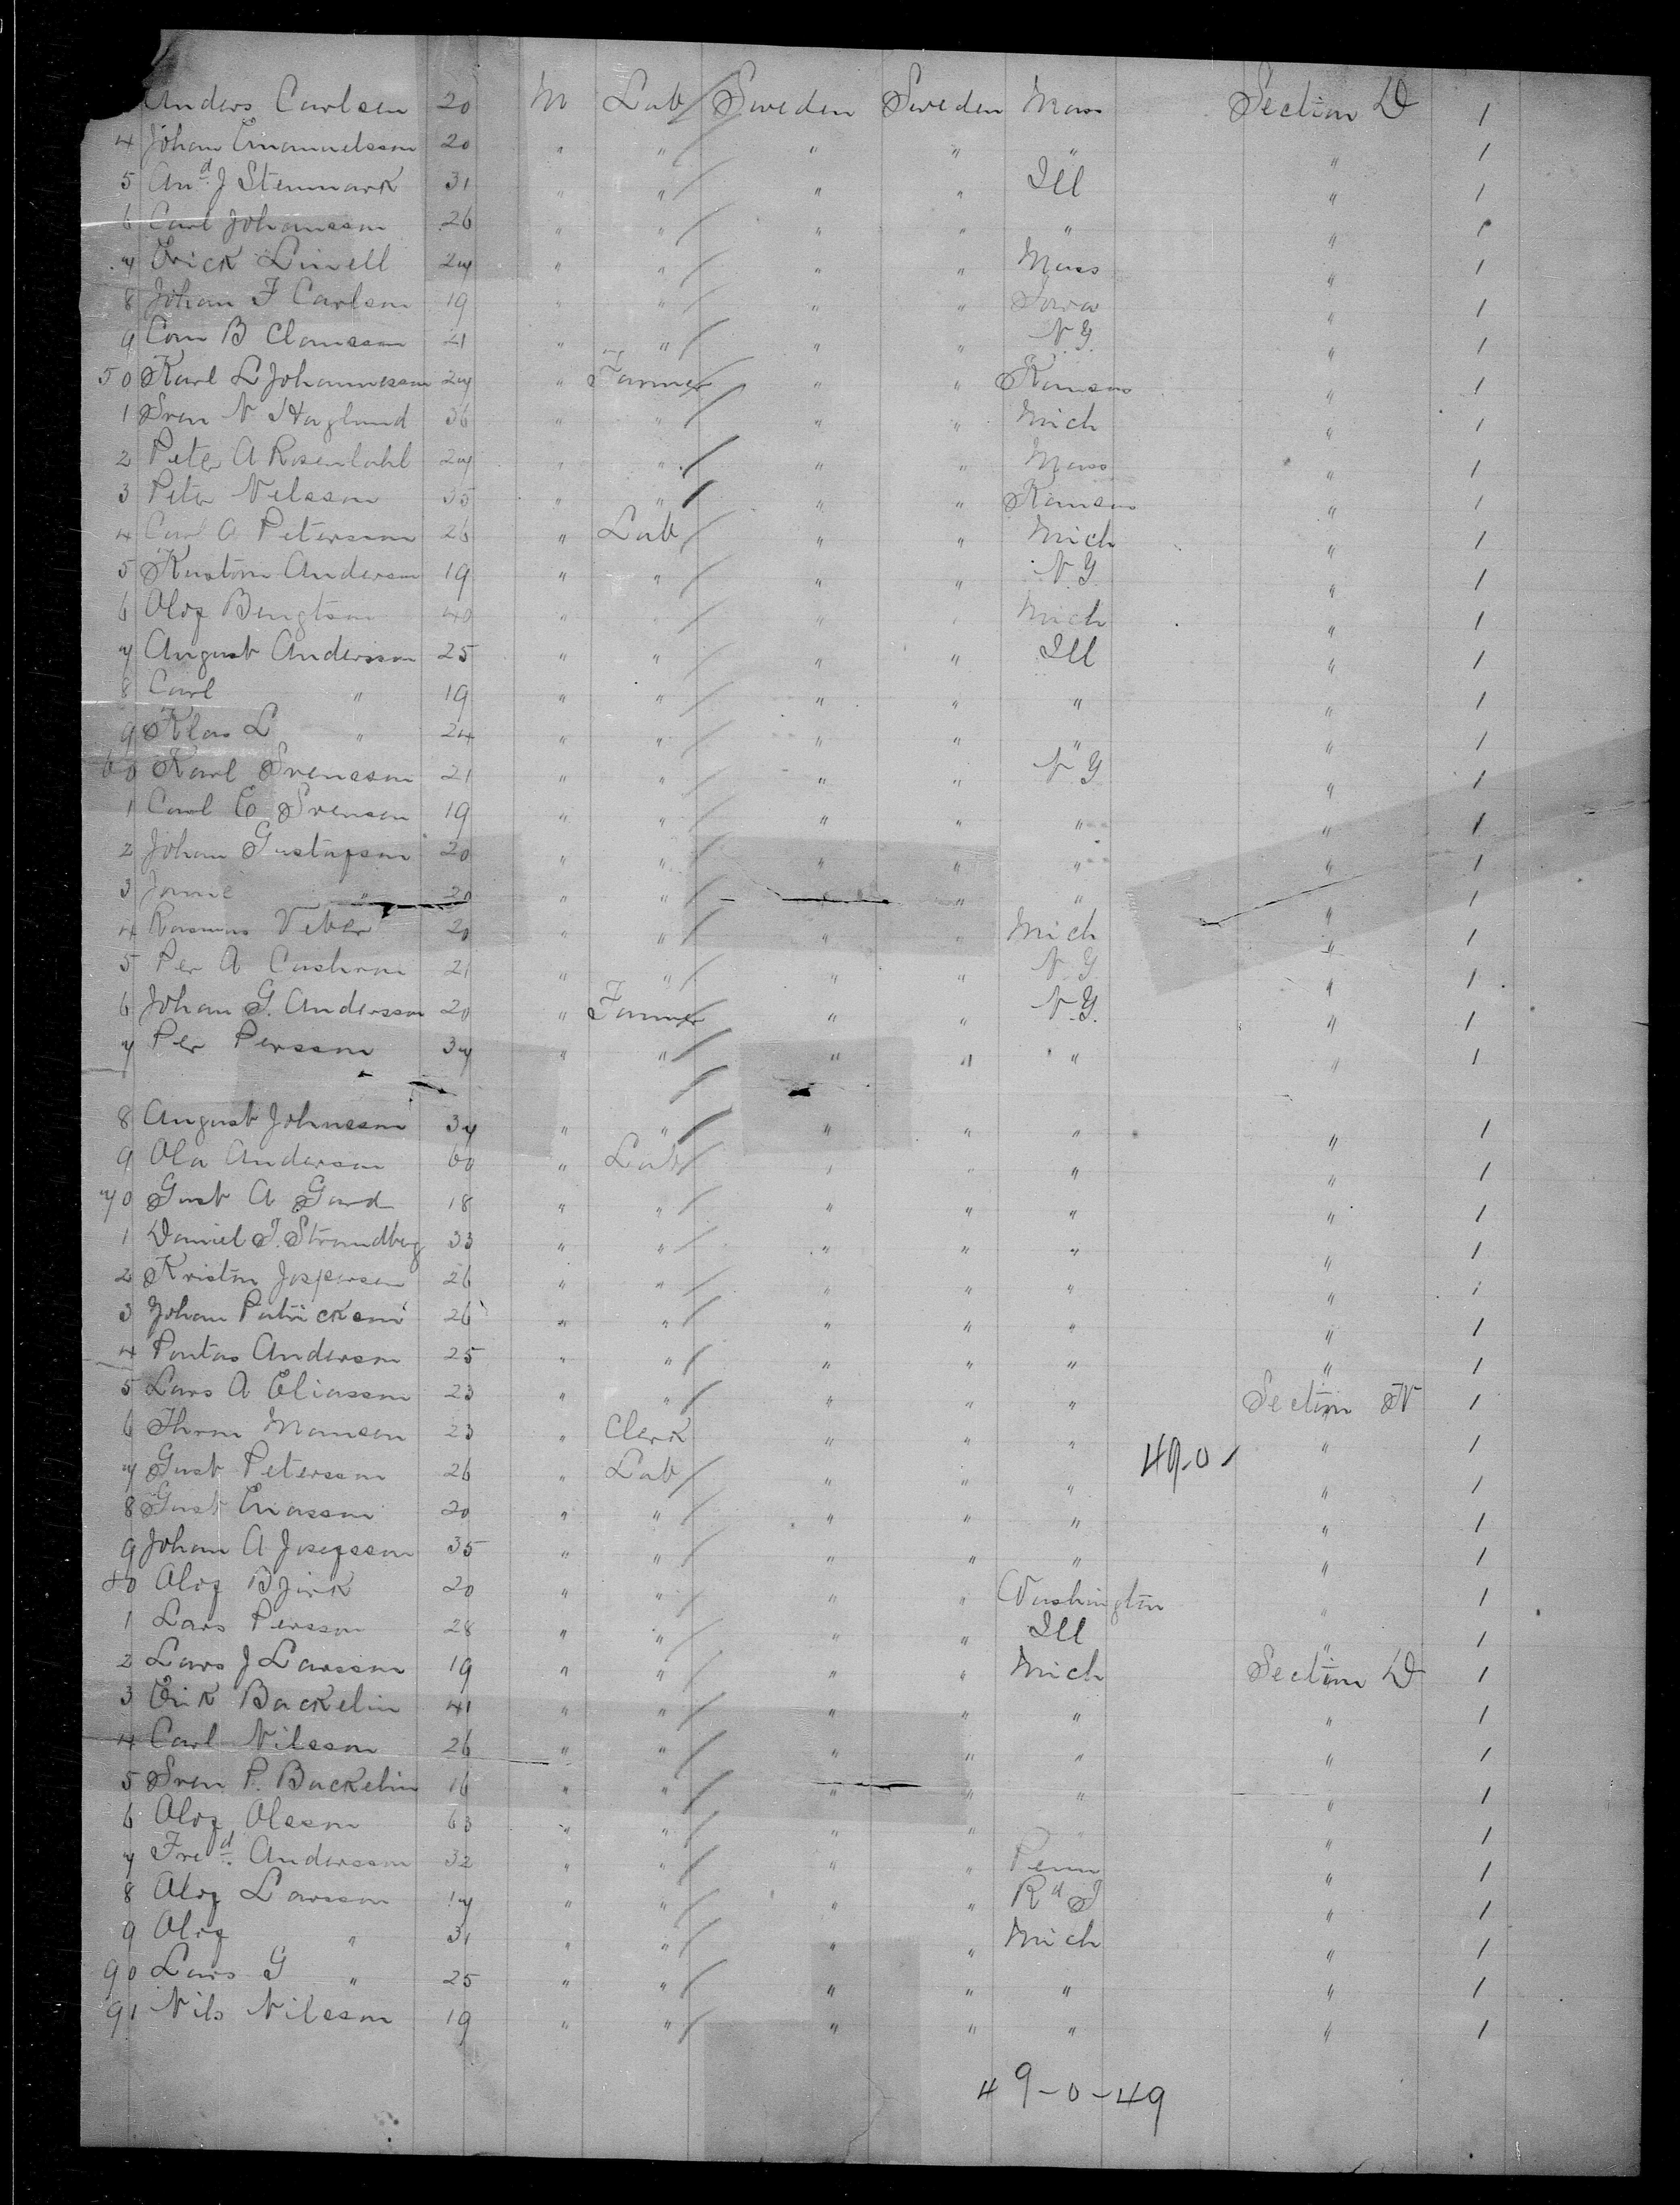 Anders Carlsen 20 M Lab Sweden Sweden Mass Section D 1
4 Johan Emanuelsson 20 " " " " " " 1
5 And J Stenmark 31 " " " " Ill " 1
6 Carl Johansson 26 " " " " " " 1
7 Erick Linell 27 " " " " Mass " 1
8 Johan F Carlson 19 " " " " Iowa " 1
9 B Clausson 21 " " " " N.Y. " 1
50 Karl L Johannesson 27 " Farmer " " Kansas " 1
1 Sven N Haglund 36 " " " " Mich " 1
2 Peter A Rosendahl 27 " " " " Mass " 1
3 Peter Nelsson 35 " " " " Kansas " 1
4 Carl A Peterson 26 " Lab " " Mich " 1
5 Anderson 19 " " " " N.Y. " 1
6 Olof Bengtson 40 " " " " Mich " 1
7 August Andersson 25 " " " " Ill " 1
8 Carl " 19 " " " " " " 1
9 Klas L " 24 " " " " " " 1
60 Karl Svensson 21 " " " " N.Y " 1
1 Carl E Svenson 19 " " " " " " 1
2 Johan Gustafson 20 " " " " " " 1
3 " 20 " " " " " " 1
4 Rasmus Veber 20 " " " " Mich " 1
5 Per A 21 " " " " N.Y. " 1
6 Johan G. Andersson 20 " Farmer " " N.Y. " 1
7 Per Persson 37 " " " " " " 1
8 August Johnsson 37 " " " " " " 1
9 Ola Anderson 60 " Lab " " " " 1
70 Gust A Gard 18 " " " " " " 1
1 Daniel J. Strandberg 33 " " " " " " 1
2 Kristen Jespersen 26 " " " " " " 1
3 Johan Patrickson 26 " " " " " " 1
4 Pontus Anderson 25 " " " " " " 1
5 Lars A Eliasson 23 " " " " " Section N 1
6 Thron Monson 23 " Clerk " " " " 1
7 Gust Petersson 26 " Lab " " " 49-0- " 1
8 Gust 20 " " " " " " 1
9 Johan A Josefsson 35 " " " " " " 1
80 Olof Bjork 20 " " " " Washington " 1
1 Lars Persson 28 " " " " Ill " 1
2 Lars J Larsson 19 " " " " Mich Section D 1
3 Erik Backelin 41 " " " " " " 1
4 Carl Nilsson 26 " " " " " " 1
5 Sven P. Backelin 16 " " " " " " 1
6 Olof Olsson 63 " " " " " " 1
7 Fred. Andersson 32 " " " " Penn " 1
8 Olof Larsson 17 " " " " Rd I " 1
9 Olof " 31 " " " " Mich " 1
90 Lars G " 25 " " " " " " 1
91 Nils Nilsson 19 " " " " " " 1
49-0-49